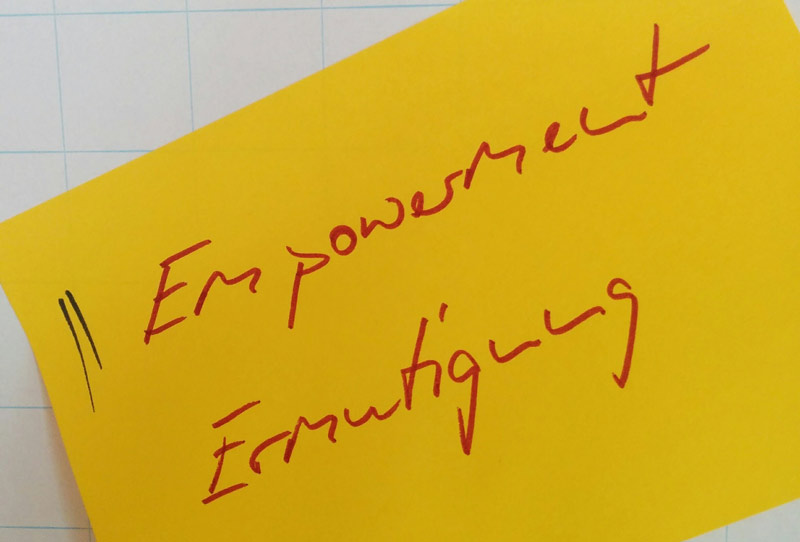 Empowerment
Ermutigung